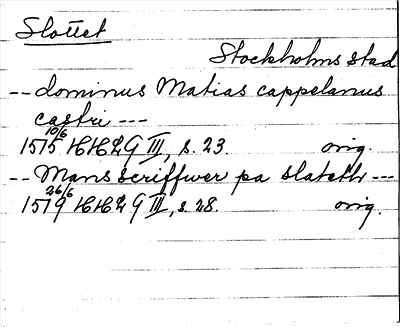 Slottet
Stockholms stad
-- dominus Matias cappelanus
castri ---
1515 10/6 HH2 G III, s. 23. orig.
-- Mans scriffwer pa slateth ---
1519 26/6 HH2 G III, s. 28. orig.